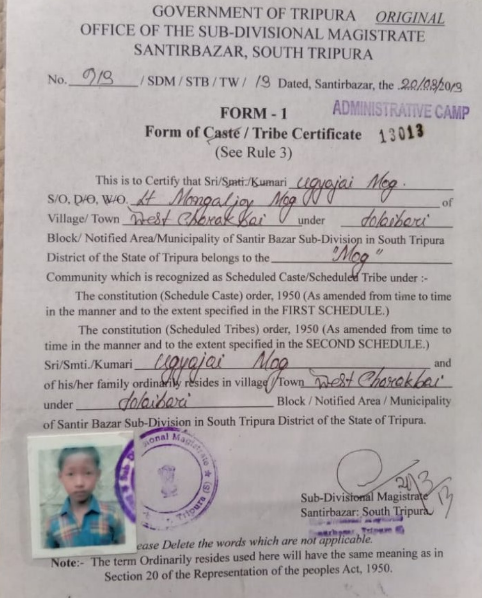 GOVERNMENT OF TRIPURA ORIGINAL
OFFICE OF THE SUB-DIVISIONAL MAGISTRATE
SANTIRBAZAR, SOUTH TRIPURA
No. 913 / SDM / STB / TW / 13 Dated, Santirbazar, the 20/03/2013
ADMINISTRATIVE CAMP
FORM - 1
Form of Caste / Tribe Certificate 13013
(See Rule 3)
This is to Certify that Sri/Smti:/Kumari Ugyajai Mog.
S/O, D/O, W/O. Lt Mongaljoy Mog of
Village/ Town West Charakbai under Jolaibari
Block/ Notified Area/Municipality of Santir Bazar Sub-Division in South Tripura
District of the State of Tripura belongs to the "Mog"
Community which is recognized as Scheduled Caste/Scheduled Tribe under :-
The constitution (Schedule Caste) order, 1950 (As amended from time to time
in the manner and to the extent specified in the FIRST SCHEDULE.)
The constitution (Scheduled Tribes) order, 1950 (As amended from time to
time in the manner and to the extent specified in the SECOND SCHEDULE.)
Sri/Smti./Kumari Ugyajai Mog and
of his/her family ordinarily resides in village/Town West Charakbai
under Jolaibari Block / Notified Area / Municipality
of Santir Bazar Sub-Division in South Tripura District of the State of Tripura.
Sub-Divisional Magistrate
Tripura (S)
Sub-Divisional Magistrate
Santirbazar: South Tripura
ease Delete the words which are not applicable.
Note:- The term Ordinarily resides used here will have the same meaning as in
Section 20 of the Representation of the peoples Act, 1950.